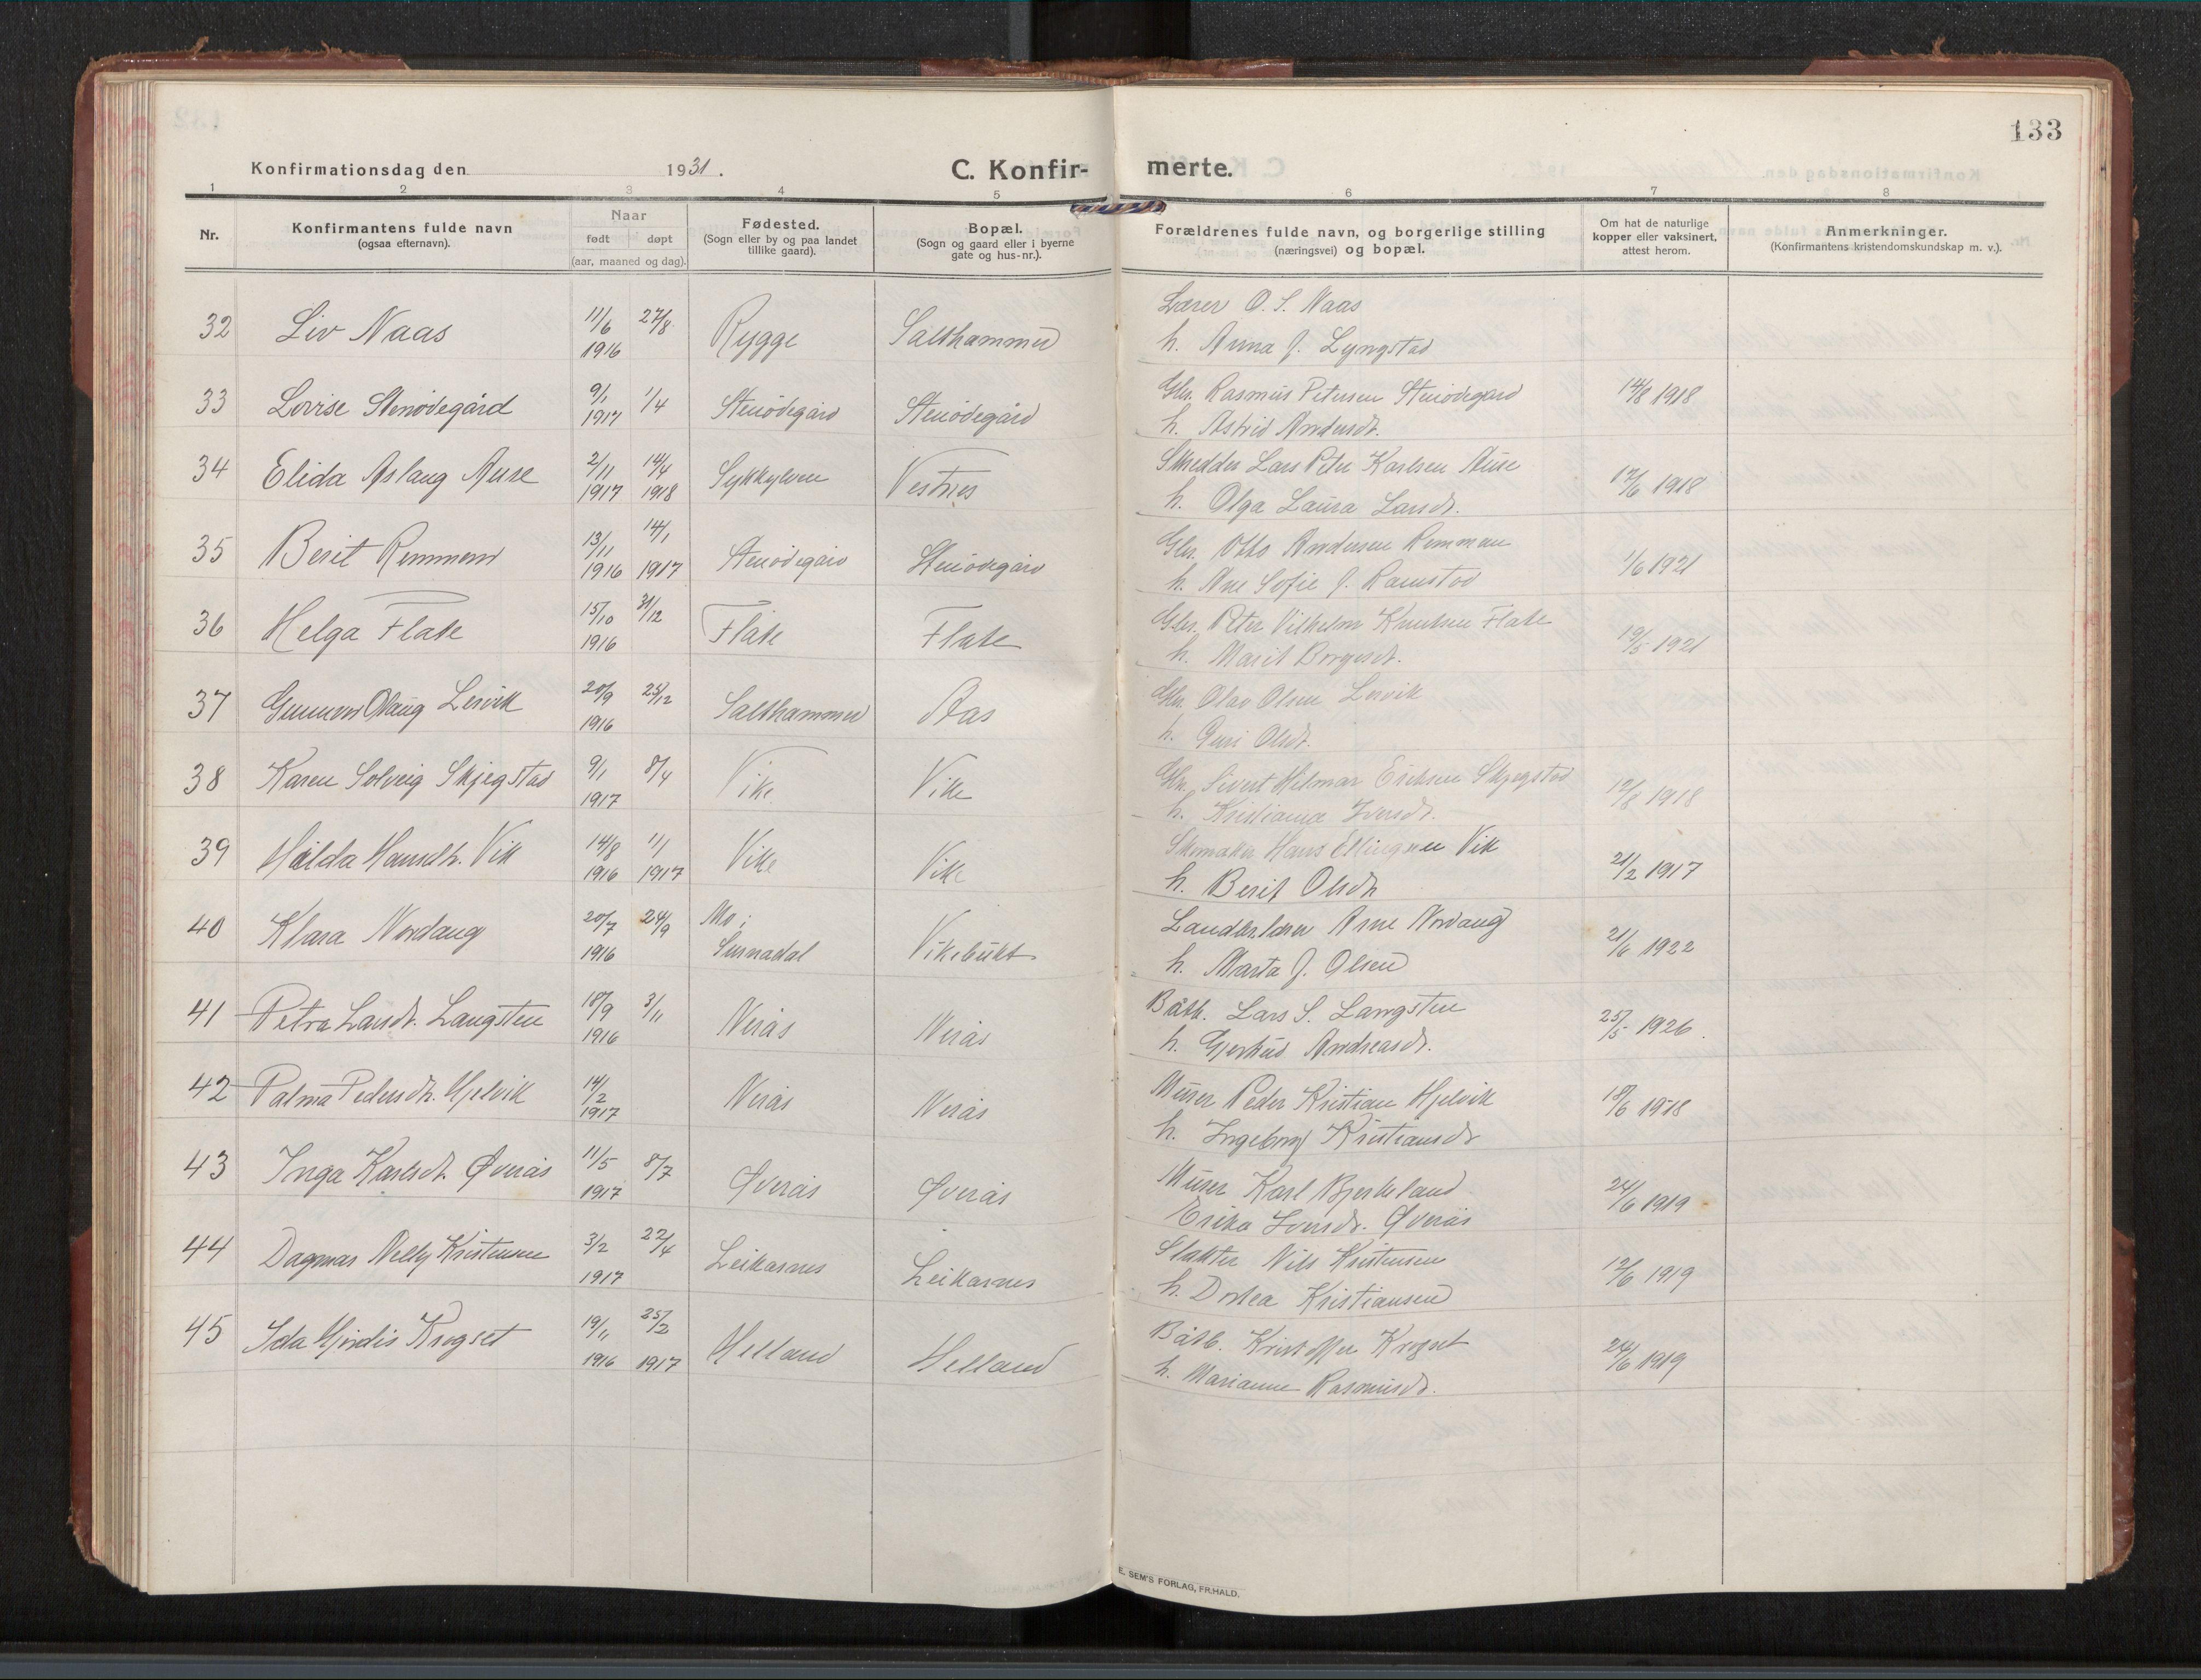 133
Konfirmationsdag den 1931. C. Konfir- merte.
1 2 3 4 5 6 7 8
Nr.
Konfirmantens fulde navn
(ogsaa efternavn).
Naar
født døpt
(aar, maaned og dag).
Fødested.
(Sogn eller by og paa landet
tillike gaard).
Bopæl.
(Sogn og gaard eller i byerne
gate og hus-nr.).
Forældrenes fulde navn, og borgerlige stilling
(næringsvei) og bopæl.
Om hat de naturlige
kopper eller vaksinert,
attest herom.
Anmerkninger.
(Konfirmantens kristendomskundskap m. v.).
Lærer O. S. Naas
32 Liv Naas 11/6 27/8 Rygge Salthammer
1916 h. Anna J. Lyngstad
33 Lovise Stenødegård 9/1 1/4 Stenødegård Stenødegård Gbr. Rasmus Petersen Stenødegård 14/8 1918
1917 h. Astrid Andersdt.
34 Elida Aslaug Aure 2/11 14/4 Sykkylven Vestnes Skredder Lars Peter Karlsen Aure 12/6 1918
1917 1918 h. Olga Laura Larsdt.
35 Berit Remmem 13/11 14/1 Stenødegård Stenødegård Gbr. Otto Andersen Remmem 1/6 1921
1916 1917 h. Ane Sofie J. Ramstad
36 Helga Flate 15/10 31/12 Flate Flate Gbr. Peter Vilhelm Knutsen Flate 19/5 1921
1916 h. Marit Borgesdt.
37 Gunnvor Olaug Lervik 20/9 25/12 Salthammer Aas Gbr. Olav Olsen Lervik
1916 h. Guri Olsdt.
38 Karen Solveig Skjegstad 9/1 8/4 Vike Vike Gbr. Sivert Hilmar Eriksen Skjegstad 12/8 1918
1917 h. Kristianna Iversdt.
39 Hilda Hansdtr. Vik 14/8 1/1 Vike Vike Skomaker Hans Ellingsen Vik 21/2 1917
1916 1917 h. Berit Olsdtr
40 Klara Nordaug 20/7 24/9 Mo i Vikebukt Arne Nordaug 21/6 1922
1916 Surnadal h. Marta J. Olsen
41 Petra Larsdt. Langsten 18/9 3/11 Nerås Nerås Båtb. Lars S. Langsten 25/5 1926.
1916 h. Gjertrud Andreasdt.
42 Palma Pedersdtr. Hjelvik 14/2 Nerås Nerås Murer Peder Kristian Hjelvik 18/6 1918
1917 h. Ingeborg Kristiansdt
43 Inga Karlsdt. Øverås 11/5 8/7 Øverås Øverås Murer Karl Bjerkeland 24/6 1919
1917 Erika Iversdt. Øverås
44 Dagmar Nelly Kristensen 3/2 22/4 Leikarnes Leikarnes Slakter Nils Kristensen 12/6 1919
1917 h. Dortea Kristiansen
45 Ida Hjørdis Krogset 19/11 25/2 Helland Helland Båtb. Kristoffer Krogset 24/6 1919
1916 1917 h. Marianne Rasmusdt.
E. SEM'S FORLAG, FR.HALD.